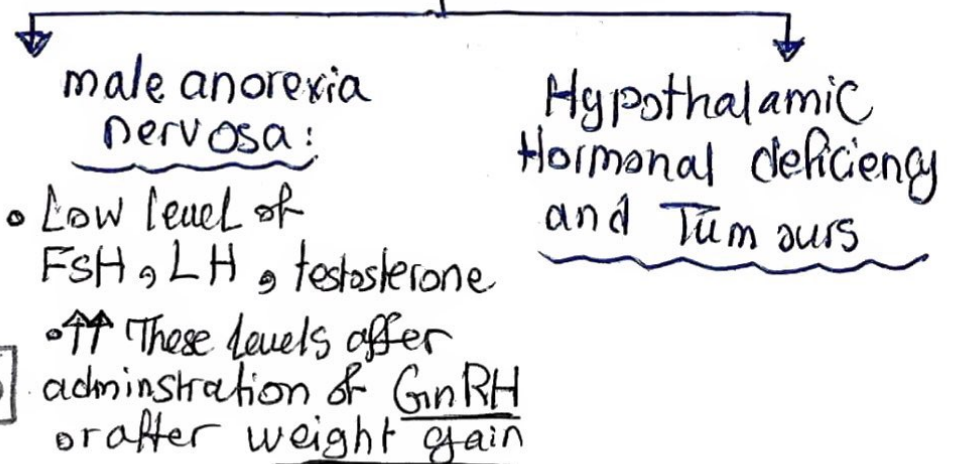 male anorexia
nervosa:
• Low level of
FSH, LH, testosterone
• ↑↑ These levels after
adminstration of GnRH
or after weight gain
Hypothalamic
Hormonal deficiency
and Tumours